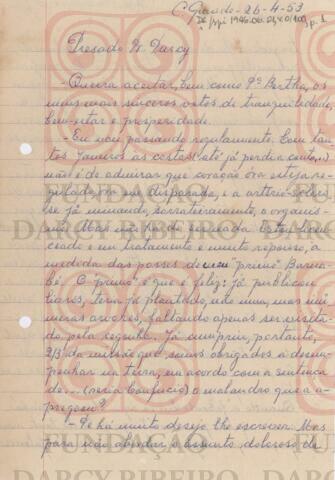 C. Grande - 26-4-53
p. 1
Presado Dr. Darcy
- Queira aceitar, bem como Dª Bertha, os
meus mais sinceros votos de tranquilidade,
bem-estar e prosperidade.
- Eu vou passando regularmente. Com tan-
tos janeiros às costas (até já perdi a conta...)
não é de admirar que coração ora esteja re-
gulado, ora em disparada, e a arterio-sclero-
se já minando, sorrateiramente, o organis-
mo. Mas não há de ser nada. Estou licen-
ciado e em tratamento e muito repouso, à
medida das posses do meu "primo" Barna-
bé. O "primo" é que é feliz! Já publicou
livros, tem já plantado, não uma, mas inú-
meras arvores, faltando apenas ser visita-
do pela cegonha. Já cumpriu, portanto,
2/3 da missão que somos obrigados a desem-
penhar na terra, na acordo com a sentença
de... (seria Confucio) o malandro que a a-
pregoou?
- De há muito desejo lhe escrever. Mas
para não abordar o assunto doloroso de
FUNDAÇÃO
DARCY RIBEIRO
FUNDAÇÃO
DARCY RIBEIRO